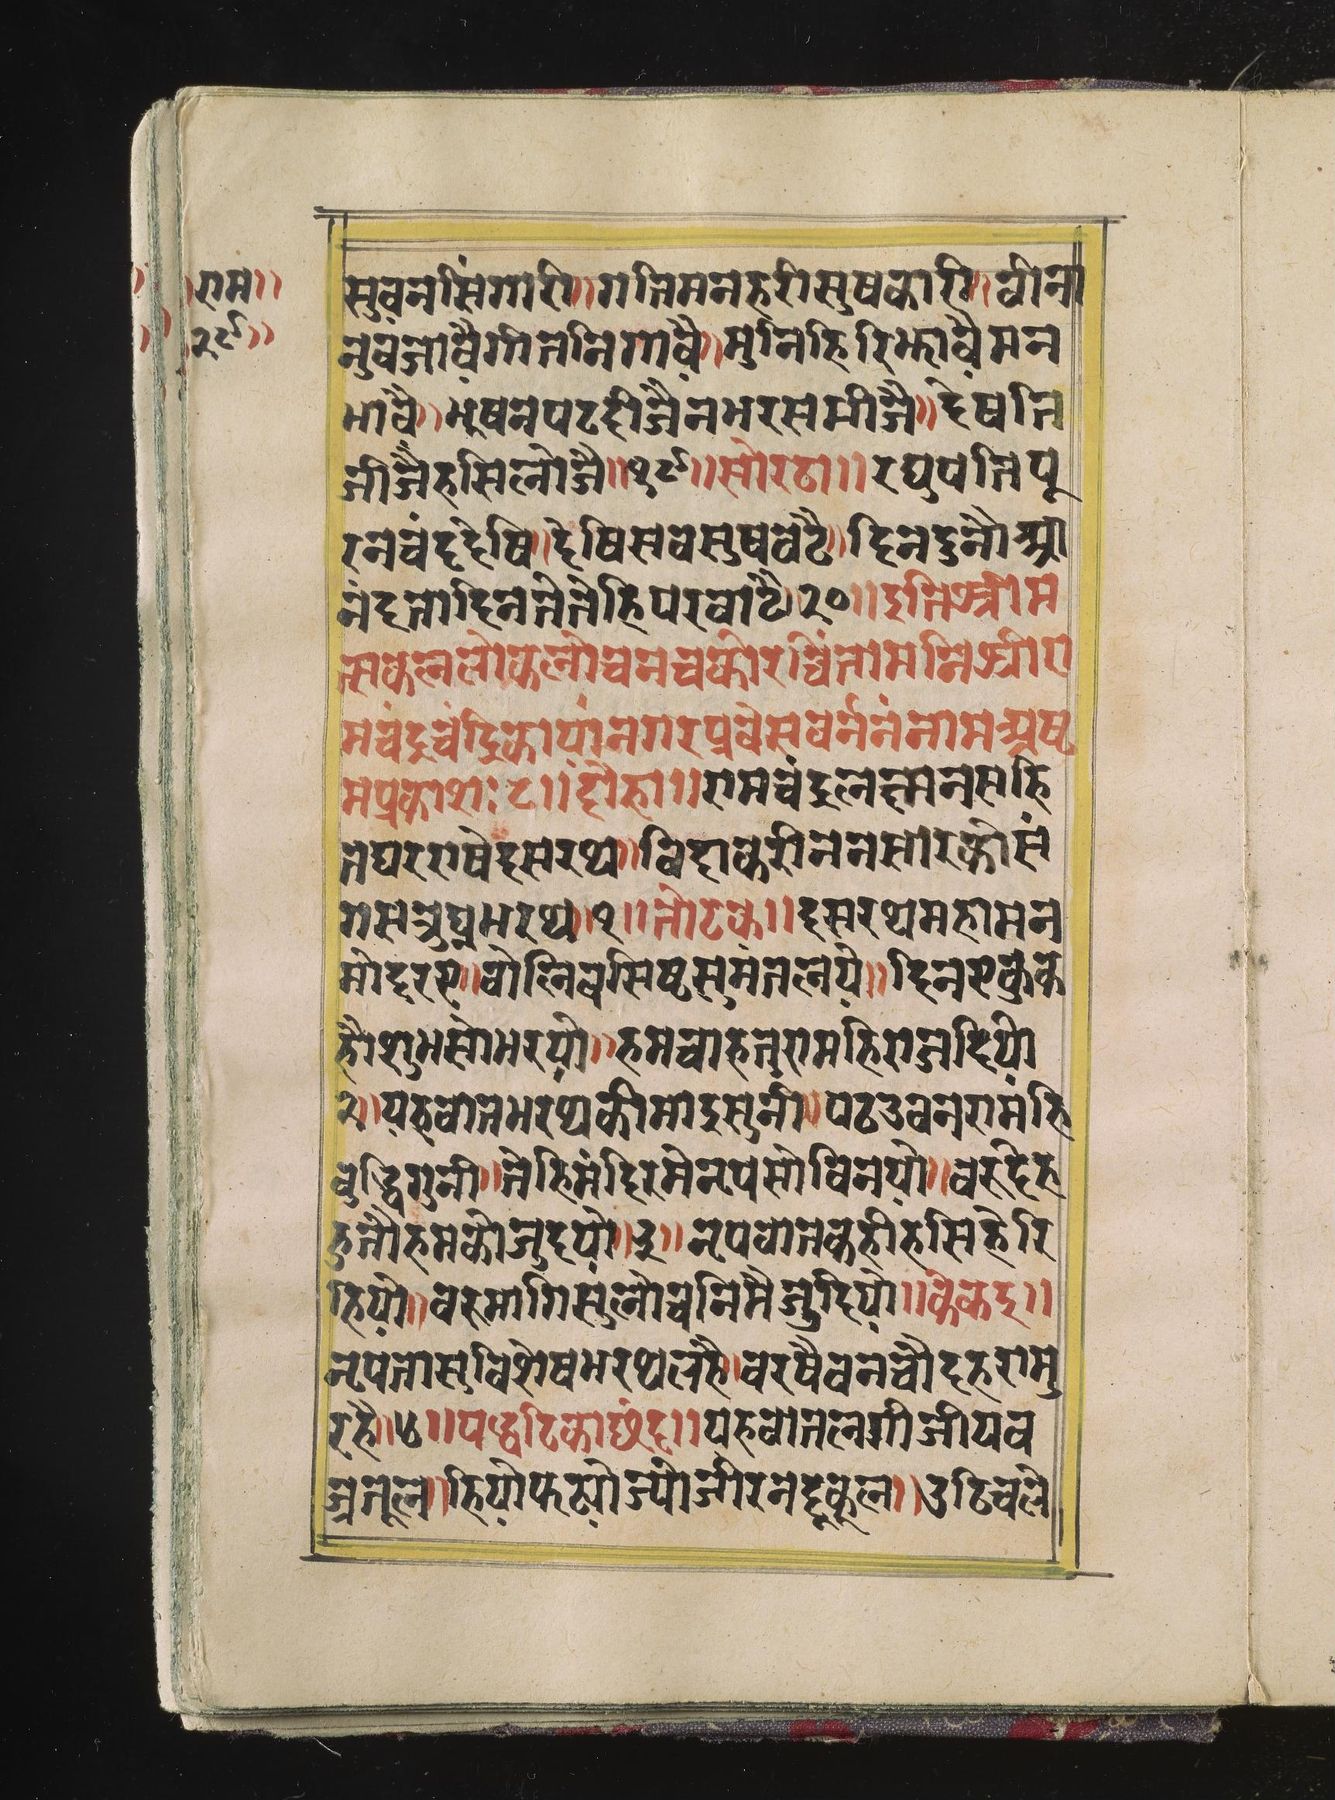 राम॥
२९॥
सुवनसिंगारी॥गतिमनहरीसुषकारी॥वीना
नुवजावैगीतनिगावै॥मुनिहिरिझावैमन
भावै॥भूषनपटदीजैनभरसभीजै॥देषति
जीजैहसिलीजै॥१९॥सोरठा॥रघुपतिपू
रनचंददेषि॥देषिसवसुषचढै॥दिनदुनौआ
नंदतादिनतेतेहिपरवाढै॥२०॥इतिश्रीम
त्सकललोकलोचनचकोरचिंतामनिश्रीरा
मचंद्रचंद्रिकायांनगरप्रवेसवर्ननंनामअष्ट
मप्रकाशः८॥दोहा॥रामचंद्रलछमनसहि
तघरराषेदसरथ॥विदाकरीननसारकोसं
गसत्रुघ्नभरथ॥१॥तोटक॥दसरथमहामन
मोदरए॥वोलिवसिष्टसुमंतलये॥दिनएकुक
हौशुभसोभरयो॥हमचाहतुरामहिराजदियो
२॥यहवातभरथकीमाइसुनी॥पठउवनरामंहि
वुद्धिगुनी॥तेहिमंदिरमेनृपसोविनयो॥वरुदेह
हुतोहमकोजुदयो॥३॥नृपवातकहीहसिहेरि
हियो॥वरुमागिसुलोचनिमैजुदियो॥केकइ॥
नृपतासुविशेषभरथलहै॥वरषैवनचौदहरामु
रहै॥४॥पद्धटिकाछंद॥यहवातलगीजीयव
ज्रतूल॥हियोफट्योज्योजीरनदुकूल॥उठिचले